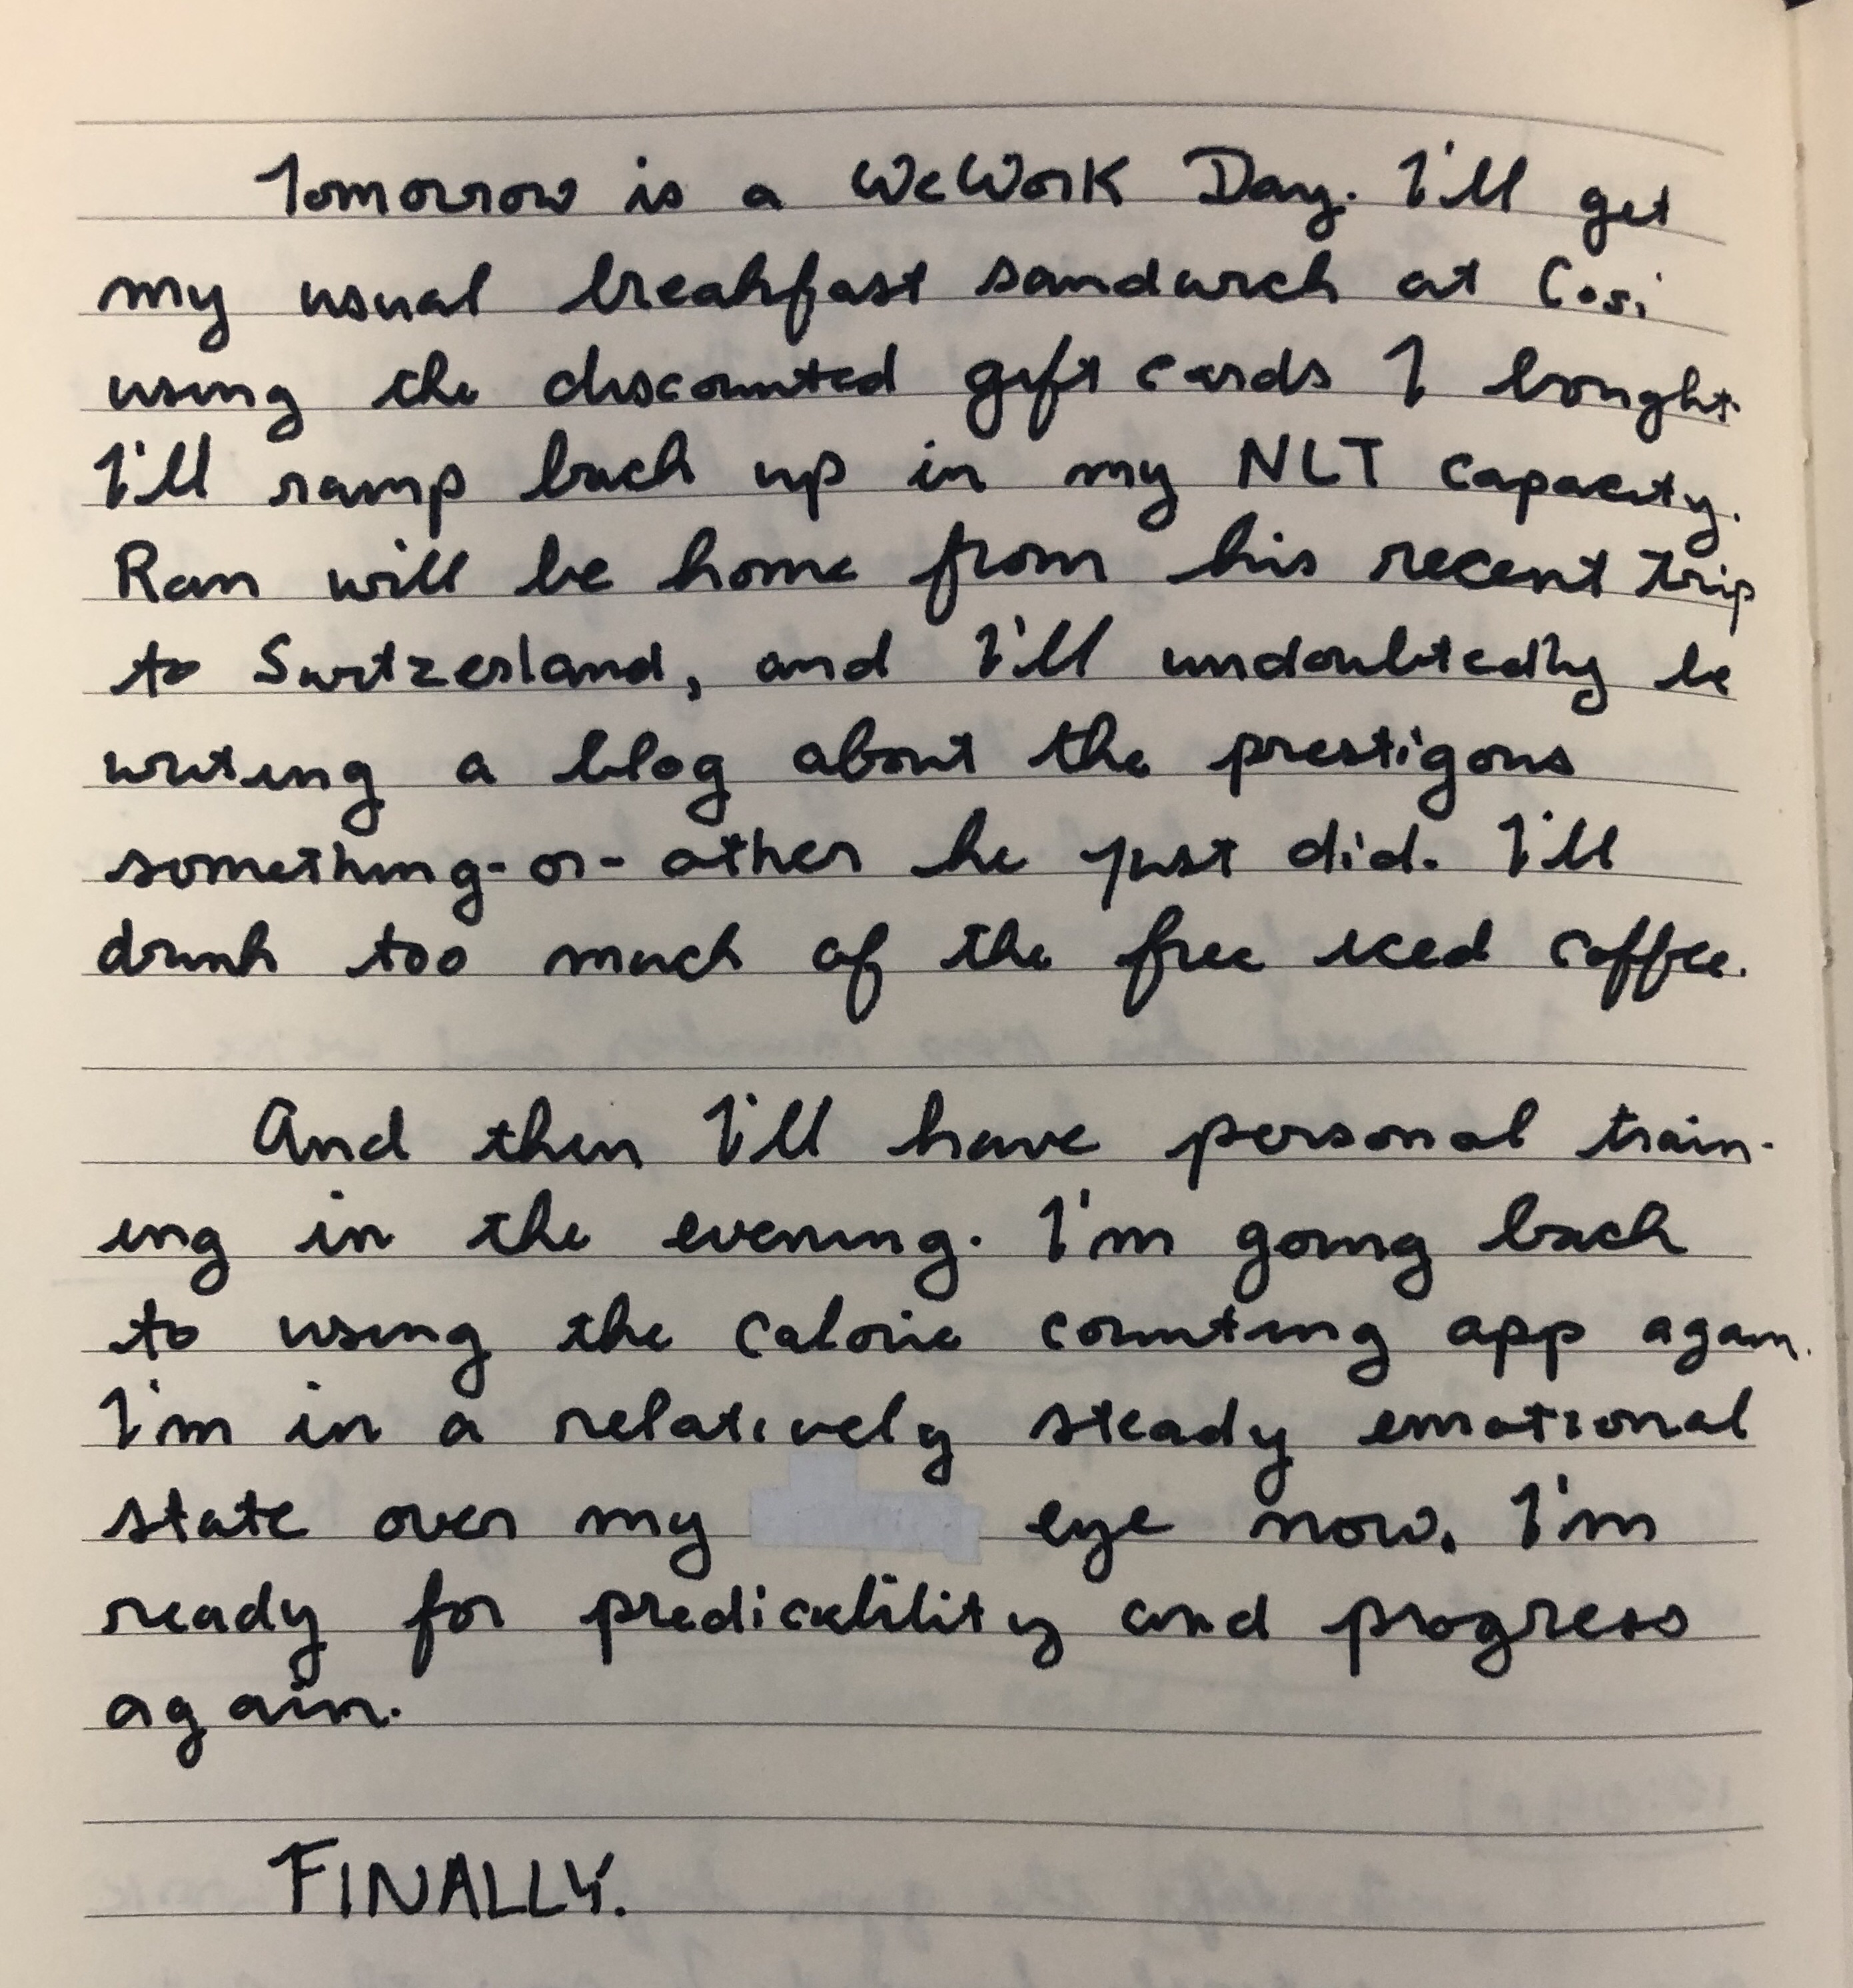 Tomorrow is a WeWork Day. I'll get
my usual breakfast sandwich at Cosi
using the discounted gift cards I bought.
I'll ramp back up in my NLT capacity.
Ran will be home from his recent trip
to Switzerland, and I'll undoubtedly be
writing a blog about the prestigous
something-or-other he just did. I'll
drink too much of the free iced coffee.
And then I'll have personal train-
ing in the evening. I'm going back
to using the calorie counting app again.
I'm in a relatively steady emotional
state over my eye now. I'm
ready for predicability and progress
again.
FINALLY.